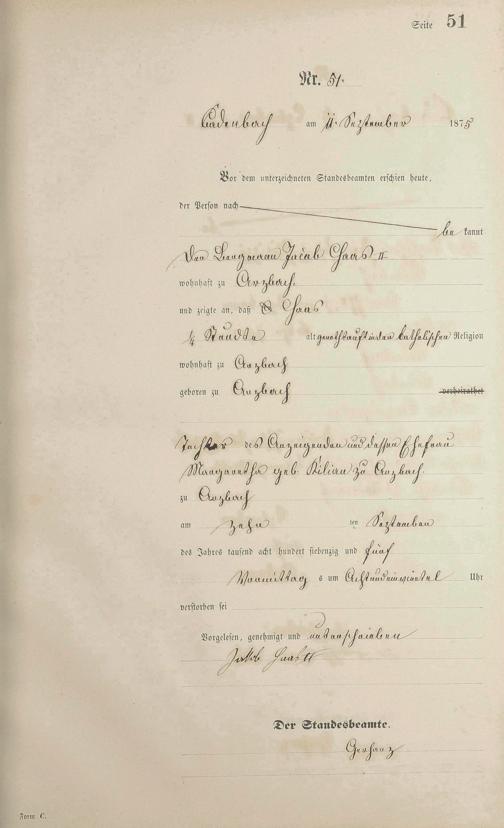 Seite 51
Nr. 51.
Cadenbach am 11. September 1875
Vor dem unterzeichneten Standesbeamten erschien heute,
der Person nach
be kannt
Der Bergmann Jacob Haas II
wohnhaft zu Arzbach.
und zeigte an, daß Haas
¼ Stunde alt genothtauft in der katholischen Religion
wohnhaft zu Arzbach
geboren zu Arzbach verheirathet
Tochter des Anzeigenden und dessen Ehefrau
Margaretha geb Kilian zu Arzbach.
zu Arzbach
am zehn ten September
des Jahres tausend acht hundert siebenzig und fünf
Vormittag s um Achtundeinviertel Uhr
verstorben sei
Vorgelesen, genehmigt und unterschrieben
Jakob Haas II
Der Standesbeamte.
Gerharz
Form C.